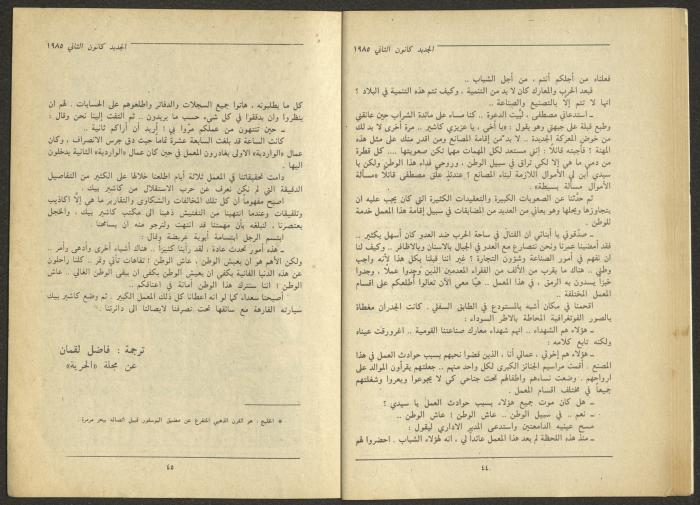 الجديد كانون الثاني ١٩٨٥
فعلناه من اجلكم أنتم ، من أجل الشباب ..
فبعد الحرب والمعارك كان لا بد من التنمية ، وكيف تتم هذه التنمية في البلاد ؟
انها لا تتم إلا بالتصنيع والصناعة ..
ـ استدعاني مصطفى ، لبّيت الدعوة .. كنا مساء على مائدة الشراب حين عانقني
وطبع قبلة على جبهتي وهو يقول : «يا أخي ، يا عزيزي كاشير .. مرة أخرى لا بد لك
من خوض المعركة الجديدة .. لا بد من إقامة المصانع ومن أقدر منك على مثل هذه
المهنة ؟ فأجبته قائلاً : انني مستعد لكل المهمات مهما تكن صعوبتها .... كل قطرة
من دمي ما هي إلا لكي تراق في سبيل الوطن ، وروحي فداء هذا الوطن ولكن يا
سيدي أين لي الأموال اللازمة لبناء المصانع ؟ عندئذ علق مصطفى قائلاً «مسألة
الأموال مسألة بسيطة» .
ثم حدّثنا عن الصعوبات الكبيرة والتعقيدات الكثيرة التي كان يجب عليه ان
يتجاوزها ويحلها وهو يعاني من العديد من المضايقات في سبيل إقامة هذا المعمل خدمة
للوطن .
ـ صدّقوني يا أبنائي ان القتال في ساحة الحرب ضد العدو كان أسهل بكثير ..
فقد أمضينا عمرنا ونحن نتصارع مع العدو في الجبال بالاسنان وبالاظافر .. وكيف لنا
ان نفهم في أمور الصناعة وشؤون التجارة ؟ غير اننا قبلنا بكل هذا لأنه واجب
وطني .. هناك ما يقرب من الألف من الفقراء المعدمين الذين وجدوا عملا ، وجدوا
خبزا يسدون به الرمق ، في هذا المعمل .. هيّا معي الآن تعالوا أطلعكم على اقسام
المعمل المختلفة ..
اقحمنا في مكان أشبه بالمستودع في الطابق السفلي . كانت الجدران مغطاة
بالصور الفوتغرافية المحاطة بالاطر السوداء :
ـ هؤلاء هم الشهداء .. انهم شهداء معارك صناعتنا القومية .. اغرورقت عيناه
ولكنه تابع كلامه :
ـ هؤلاء هم إخوتي ، عمالي أنا ، الذين قضوا نحبهم بسبب حوادث العمل في هذا
المصنع . أقمت مراسيم الجنائز الكبرى لكل واحد منهم .. جعلتهم يقرأون الموالد على
ارواحهم . وضعت نساءهم واطفالهم تحت جناحي كي لا يجوعوا ويعروا وشغلتهم
جميعاً في مختلف اقسام المعمل .
ـ هل كان موت جميع هؤلاء بسبب حوادث العمل يا سيدي ؟
ـ نعم .. في سبيل الوطن .. عاش الوطن ! عاش الوطن ..
مسح عينيه الدامعتين واستدعى المدير الاداري ليقول :
ـ منذ هذه اللحظة لم يعد هذا المعمل عائداً لي ، انه لهؤلاء الشباب . احضروا لهم
٤٤
الجديد كانون الثاني ١٩٨٥
كل ما يطلبونه ، هاتوا جميع السجلات والدفاتر واطلعوهم على الحسابات . لهم ان
ينظروا وان يدققوا في كل شيء حسب ما يريدون .. ثم التفت إلينا نحن وقال :
ـ حين تنتهون من عملكم مرّوا بي ! أريد أن أراكم ثانية ..
كانت الساعة قد بلغت السابعة عشرة تماما حيث دق جرس الانصراف ، وكان
عمال «الوارديـة» الاولى يغادرون المعمل في حين كان عمال «الواردية» الثانية يدخلون
دامت تحقيقاتنا في المعمل ثلاثة أيام اطلعنا خلالها على الكثير من التفاصيل
الدقيقة التي لم نكن نعرف عن حرب الاستقلال من كاشير بيك .
اصبح مفهوماً أن كل تلك المخالفات والشكاوى والتقارير ما هي إلا اكاذيب
وتلفيقات وعندما انتهينا من التفتيش ذهبنا الى مكتب كاشير بيك ، والخجل
يعتصرنا ، لنبلغه بأن مهمتنا قد انتهت ولنرجو منه ان يسامحنا
ابتسم الرجل ابتسامة أبوية عريضة وقال :
ـ هذه أمور تحدث عادة ، لقد رأينا كثيرا .. هناك أشياء أخرى وأدهى وأمر ..
ولكن الأهم هو ان يعيش الوطن ، عاش الوطن ! تفاهات تأتي وتمر .. كلنا راحلون
عن هذه الدنيا الفانية يكفي ان يعيش الوطن يكفي ان يبقى الوطن الغالي .. عاش
الوطن ! اننا سنترك هذا الوطن أمانة في اعناقكم ..
أصبحنا سعداء كما لو انه اعطانا كل ذلك المعمل الكبير . ثم وضع كاشير بيك
سيارته الفارهة مع سائقها تحت تصرفنا لايصالنا الى دائرتنا .
ترجمة : فاضل لقمان
عن مجلة «الحرية»
* الخليج : هو القرن الذهبي المتفرع عن مضيق البوسفور قبيل اتصاله ببحر مرمرة
٤٥